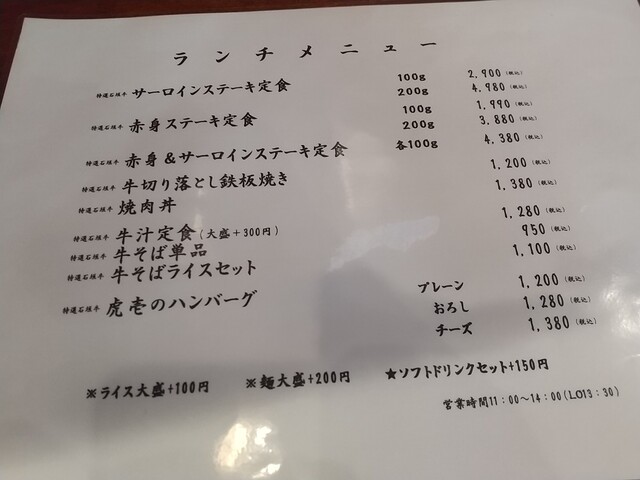 ランチメニュー
特選石垣牛 サーロインステーキ定食 100g 2,900(税込)
200g 4,980(税込)
特選石垣牛 赤身ステーキ定食 100g 1,990(税込)
200g 3,880(税込)
特選石垣牛 赤身&サーロインステーキ定食 各100g 4,380(税込)
特選石垣牛 牛切り落とし鉄板焼き 1,200(税込)
特選石垣牛 焼肉丼 1,380(税込)
特選石垣牛 牛汁定食(大盛+300円) 1,280(税込)
特選石垣牛 牛そば単品 950(税込)
特選石垣牛 牛そばライスセット 1,100(税込)
特選石垣牛 虎壱のハンバーグ プレーン 1,200(税込)
おろし 1,280(税込)
チーズ 1,380(税込)
※ライス大盛+100円 ※麺大盛+200円 ★ソフトドリンクセット+150円
営業時間11:00~14:00(LO13:30)